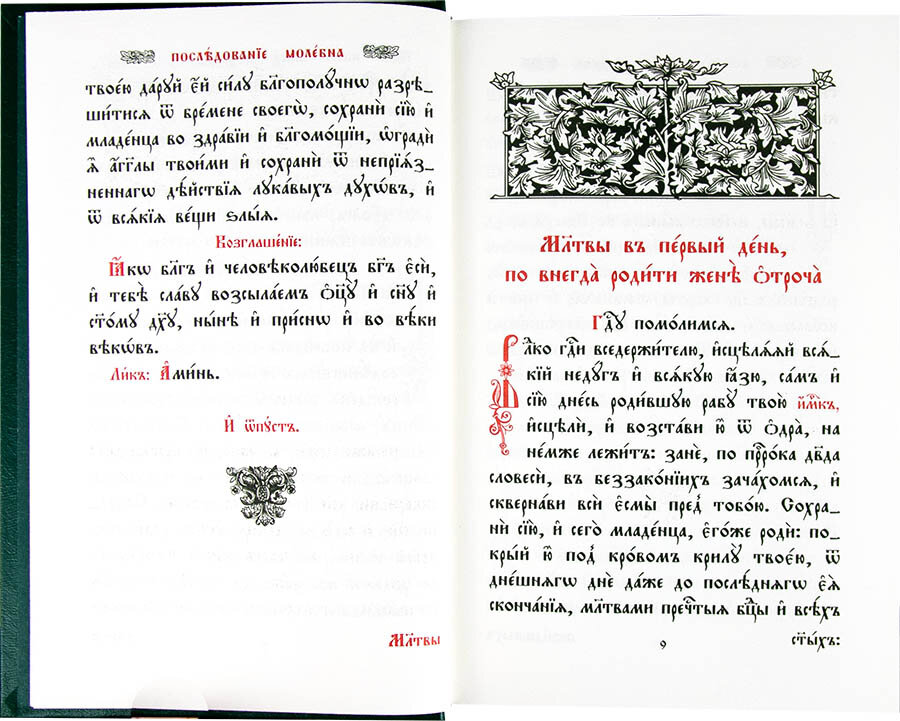 ПОСЛѢ́ДОВАНЇЕ МОЛЕ́БНА
твое́ю да́рꙋй є҆́й си́лꙋ бл҃гополꙋ́чнѡ разрѣ-
ши́тисѧ ѿ бре́мене своегѡ̀, сохранѝ сїю̀ и҆
младе́нца во здра́вїи и҆ бл҃гомо́щїи, ѡ҆градѝ
ѧ҆̀ а҆́гг҃лы твои́ми и҆ сохранѝ ѿ непрїѧ́з-
неннагѡ дѣ́йствїѧ лꙋка́выхъ дꙋхѡ́въ, и҆
ѿ всѧ́кїѧ ве́щи ѕлы́ѧ.
Возглаше́нїе:
Ꙗ҆́кѡ бл҃гъ и҆ человѣколю́бецъ бг҃ъ є҆сѝ,
и҆ тебѣ̀ сла́вꙋ возсыла́емъ ѻ҆ц҃ꙋ̀ и҆ сн҃ꙋ и҆
ст҃о́мꙋ дх҃ꙋ, ны́нѣ и҆ при́снѡ и҆ во вѣ́ки
вѣкѡ́въ.
Ли́къ: А҆ми́нь.
И҆ ѿпꙋ́стъ.
Мл҃твы
Мл҃твы въ пе́рвый де́нь,
по внегда̀ роди́ти женѣ̀ ѻ҆троча̀
Гдⷭ҇ꙋ помо́лимсѧ.
Влⷣко гдⷭ҇и вседержи́телю, и҆сцѣлѧ́ѧй всѧ́-
кїй недꙋ́гъ и҆ всѧ́кꙋю ꙗ҆́зю, са́мъ и҆
сїю̀ дне́сь роди́вшꙋю рабꙋ̀ твою̀ и҆́м҃къ,
и҆сцѣлѝ, и҆ возста́ви ю҆̀ ѿ ѻ҆дра̀, на
не́мже лежи́тъ: занѐ, по прⷪ҇ро́ка дв҃да
словесѝ, въ беззако́нїихъ зача́хомсѧ, и҆
скверна́ви всѝ є҆смы̀ пред̾ тобо́ю. Сохра-
нѝ сїю̀, и҆ сего̀ младе́нца, є҆го́же родѝ: по-
кры́й ю҆̀ под̾ кро́вомъ крилꙋ̀ твоє́ю, ѿ
дне́шнѧгѡ днѐ да́же до послѣ́днѧгѡ є҆ѧ̀
сконча́нїѧ, мл҃твами пречⷭ҇тыѧ бцⷣы и҆ всѣ́хъ
9
ст҃ы́хъ: